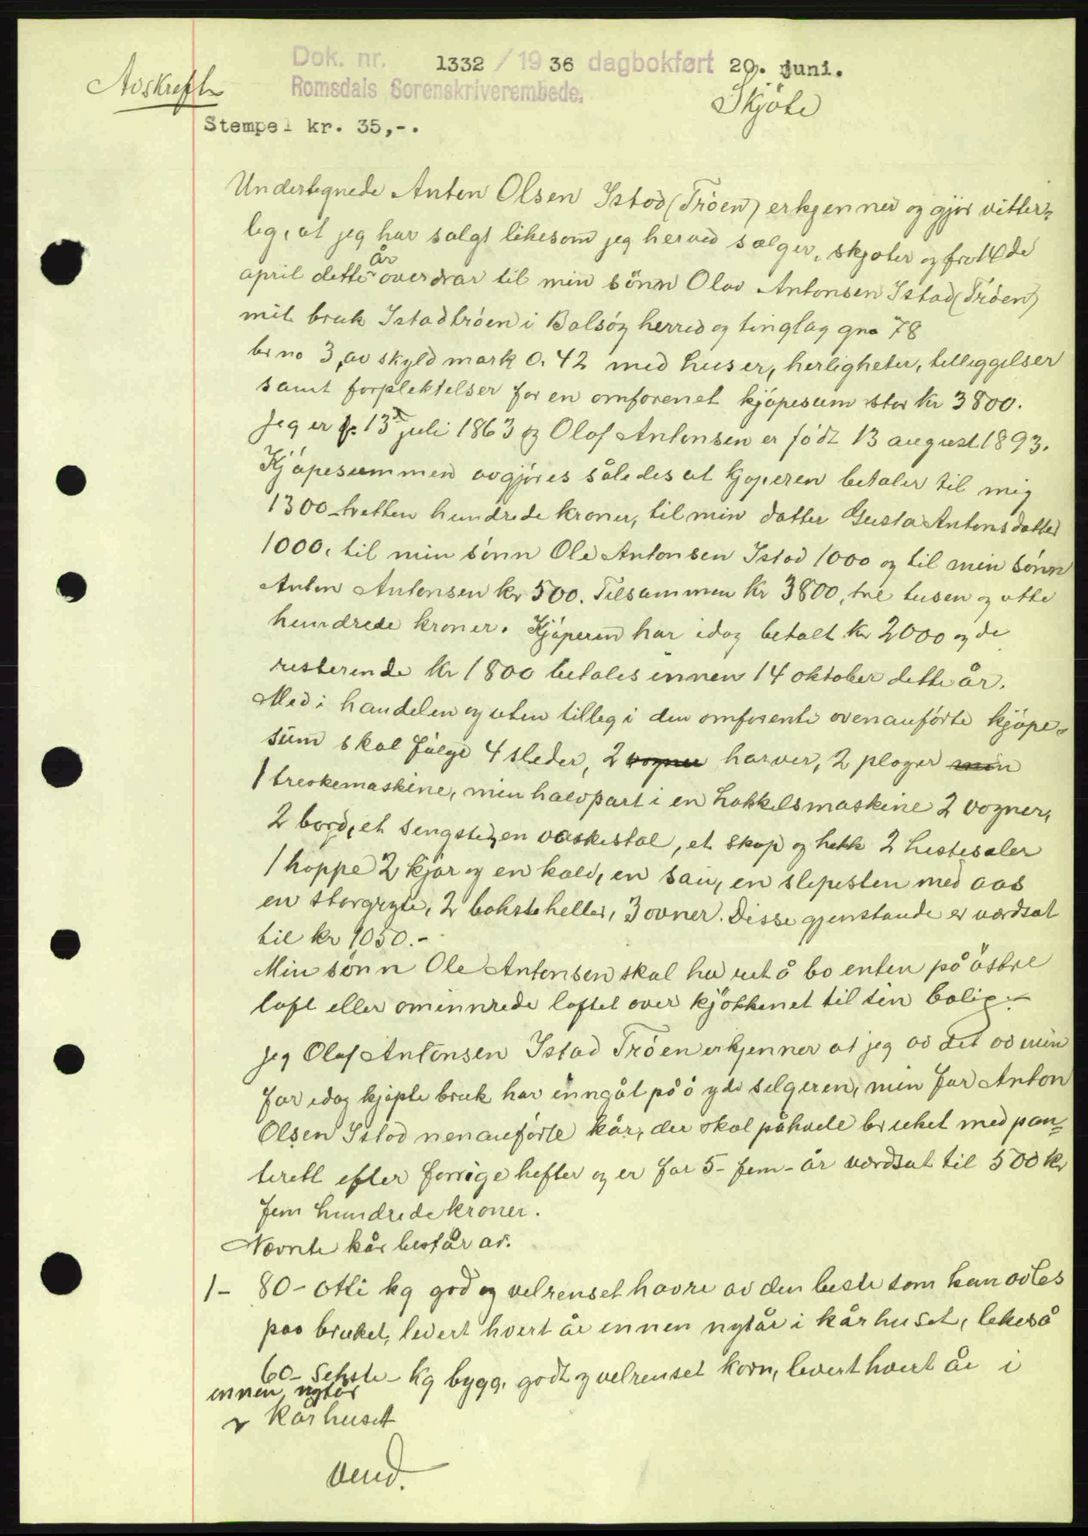 Dok. nr. 1332 / 19 36 dagbokført 20. juni.
Romsdals Sorenskriverembede.
Avskreft
Skjöte
Stempel kr. 35,-.
Undertegnede Anton Olsen Istad (Tröen) erkjenner og gjör vitter-
lig, at jeg har solgt likesom jeg herved sælger, skjøter og fra 14de
april dette år overdrar til min sönn Olav Antonsen Istad (Tröen)
mit bruk Istadtröen i Bolsöy herred og tinglag gno 78
br no 3, av skyld mark 0.42 med huser, herligheter, tilleggelser
samt forpliktelser for en omforenet kjöpesum stor kr 3800.
Jeg er f. 13 juli 1863 og Olaf Antonsen er födt 13 august 1893.
Kjöpesummen avgjöres således at kjøperen betaler til mig
1300 tretten hundrede kroner, til min datter Gusta Antonsdatter
1000, til min sönn Ole Antonsen Istad 1000 og til min sönn
Anton Antonsen kr 500. Tilsammen kr 3800, tre tusen og otte
hundrede kroner. Kjöperen har idag betalt kr 2000 og de
resterende kr 1800 betales innen 14 oktober dette år.
Med i handelen og uten tilleg i den omforente ovenanförte kjöpe-
sum skal fölge 4 sleder, 2 vogner harver, 2 ploger min
1 treskemaskine, min halvpart i en hakkelsmaskine 2 vogner,
2 bord, et sengsted, en vaskestol, et skap og hekk 2 hestesaler
1 hoppe 2 kjör og en kalv, en sau, en slepesten med aas
en storgryte, 2 baksteheller, 3 ovner. Disse gjenstande er værdsat
til kr 1050.-
Min sönn Ole Antonsen skal ha ret å bo enten på östre
loft eller ominnrede loftet over kjökkenet til sin bolig.-
Jeg Olaf Antonsen Istad Tröen erkjenner at jeg av det av min
far idag kjøpte bruk har inngåt på å yde selgeren, min far Anton
Olsen Istad nenanförte kår, der skal påhvile bruket med pan-
terett efter forrige hefter og er for 5- fem- år værdsat til 500 kr
fem hundrede kroner.
Nævnte kår består av.
1- 80- otti kg god og velrenset havre av den beste som kan avles
paa bruket, levert hvert år innen nytår i kårhuset, likeså
60- seksti- kg bygg, godt og velrenset korn, levert hvert år i
innen nytår
kårhuset
vend.